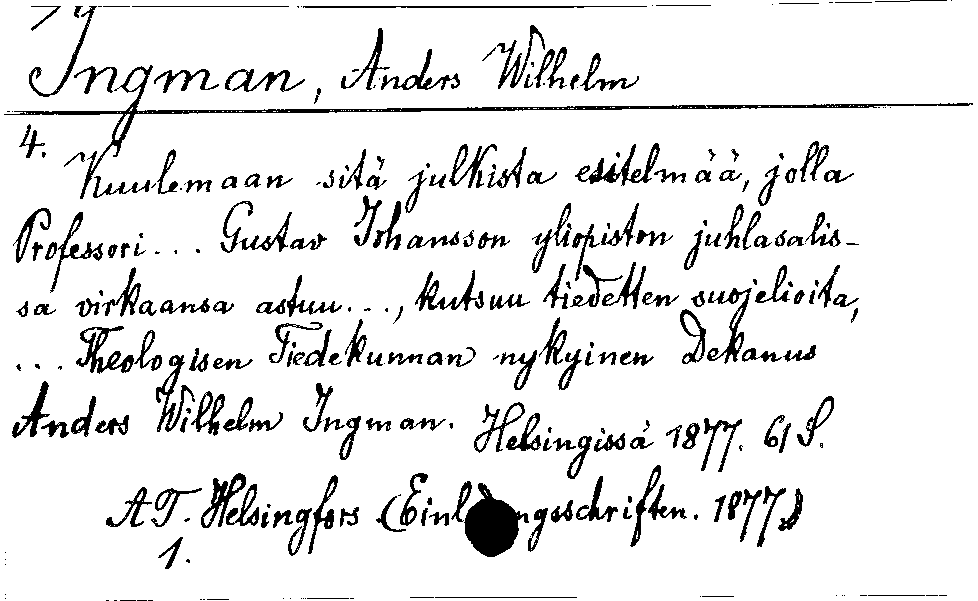 Ingman, Anders Wilhelm
4.
Kuulemaan sitä julkista esitelmää, jolla
Professori... Gustav Johansson yliopiston juhlasalis-
sa virkaansa astuu..., kutsuu tiedetten suojelioita,
... Theologisen Tiedekunnan nykyinen Dekanus
Anders Wilhelm Ingman. Helsingissä 1877. 61 S.
AT. Helsingfors (Einl ngsschriften. 1877.)
1.